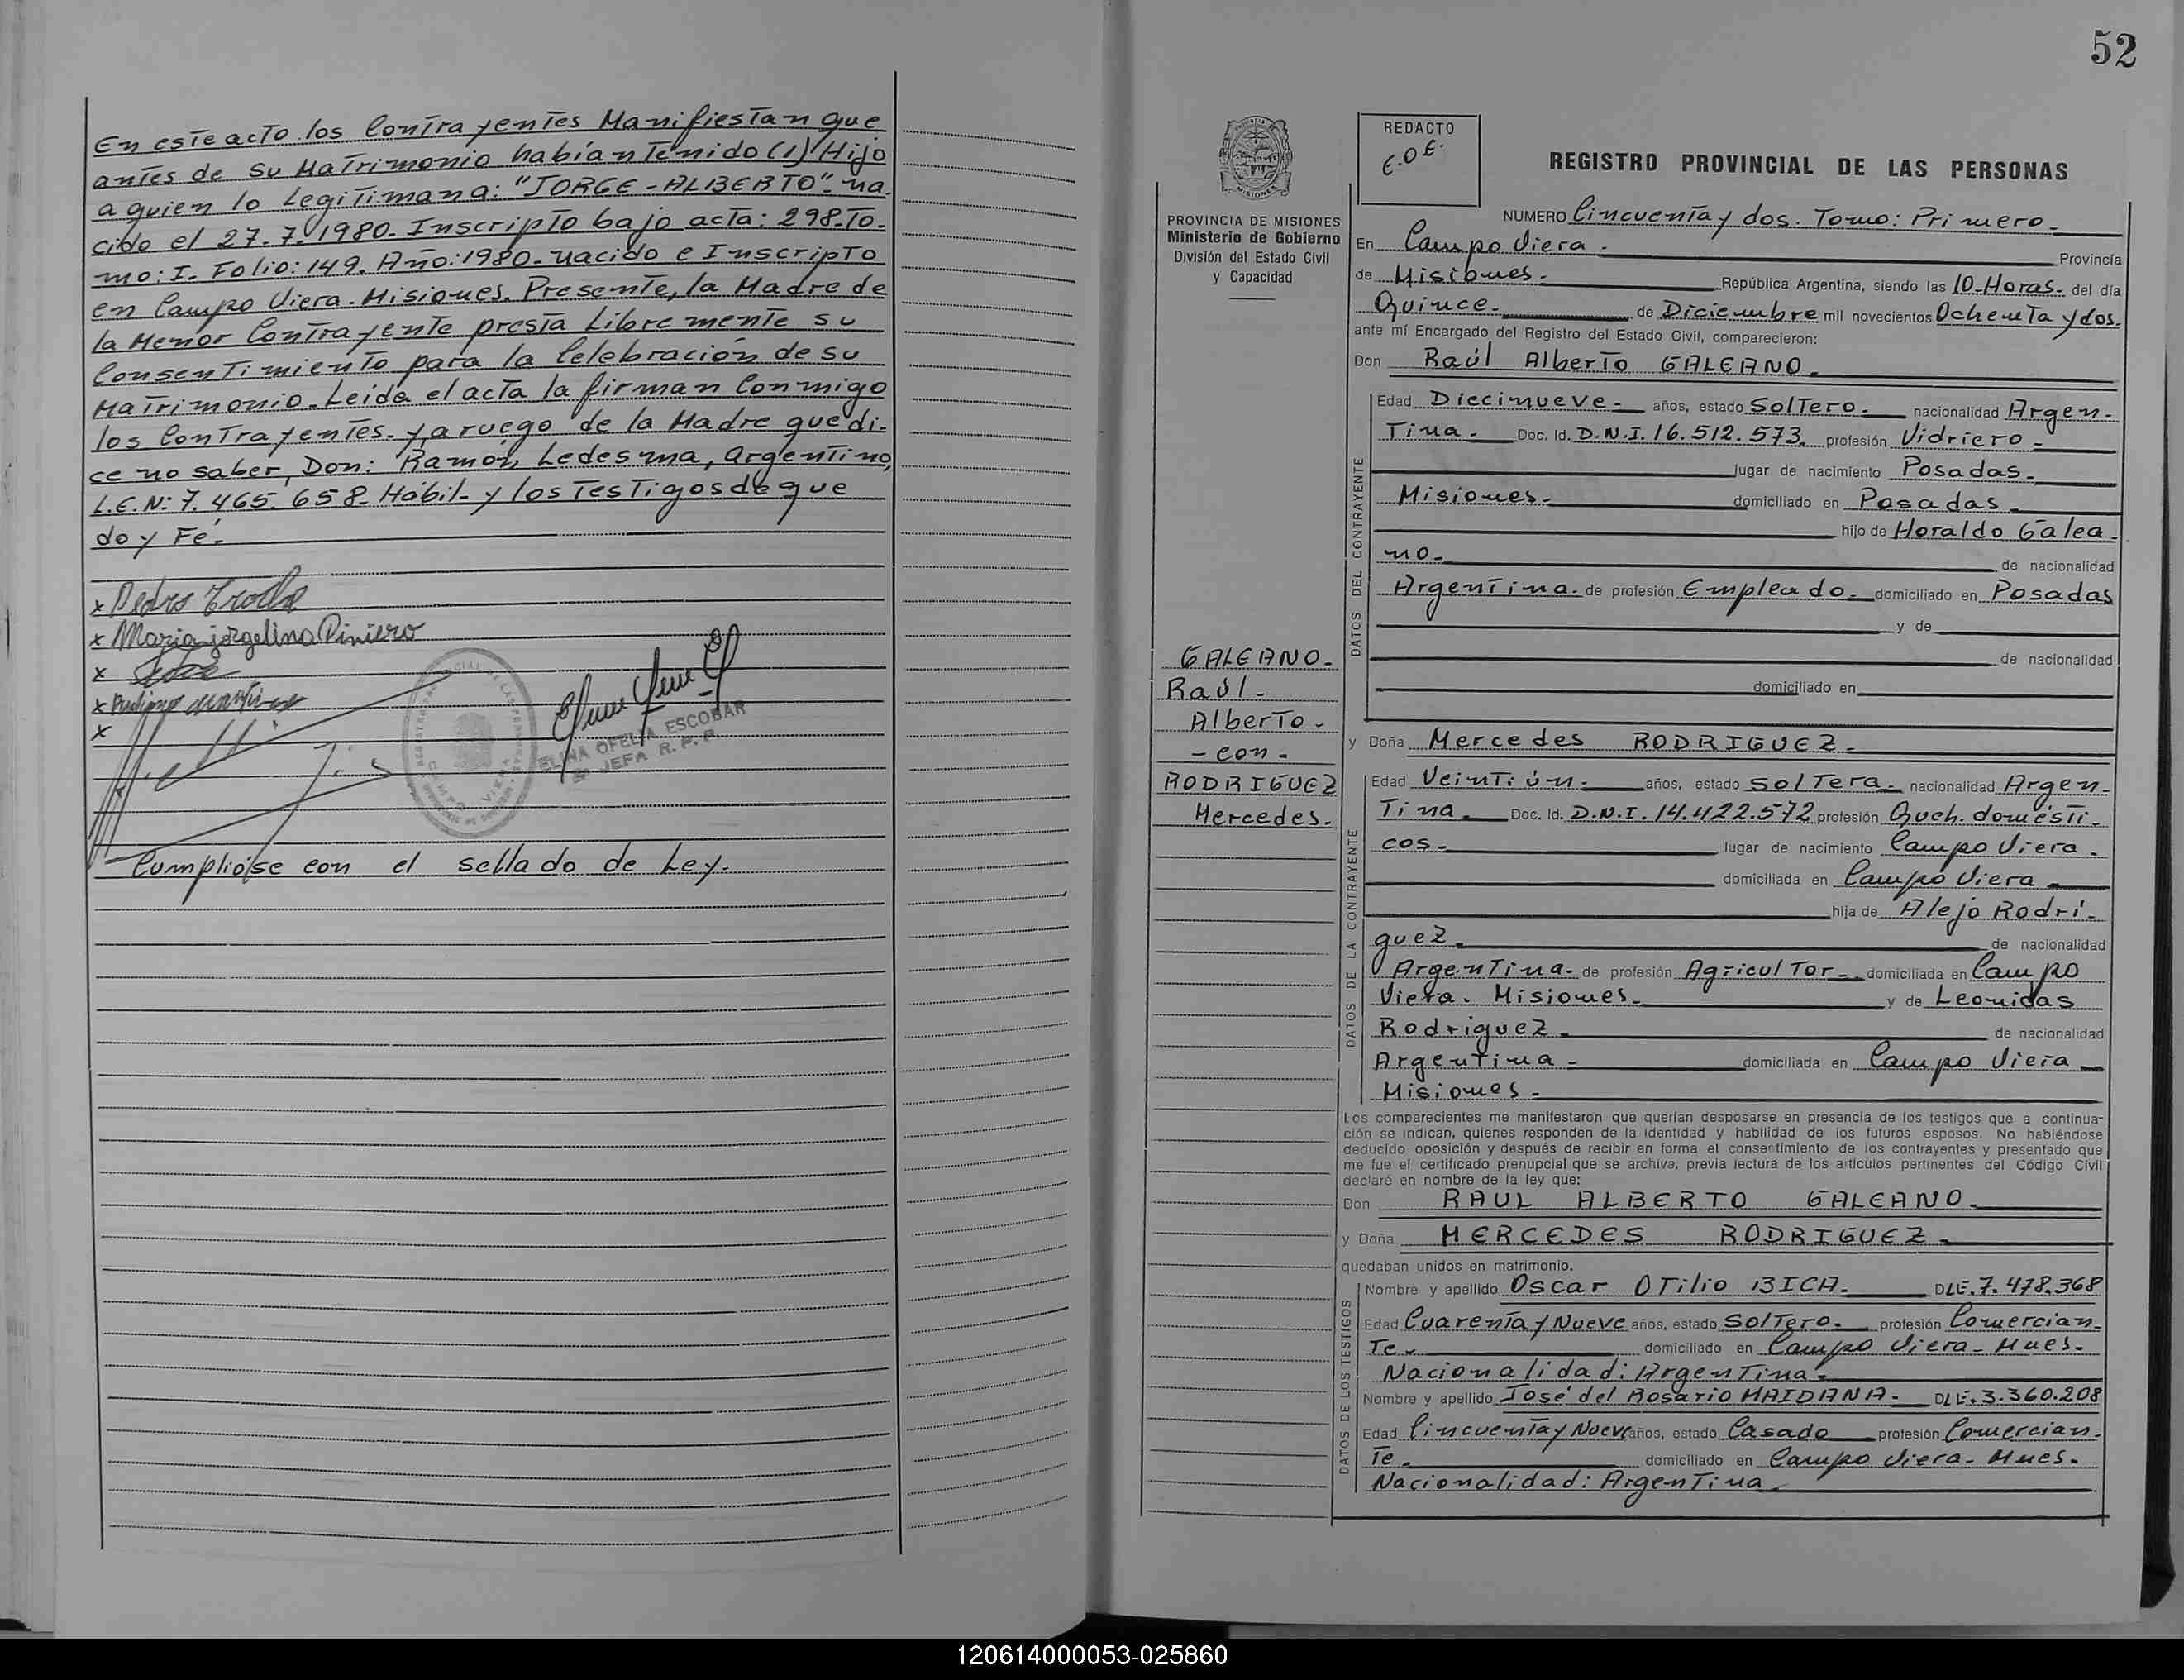 En este acto los Contrayentes Manifiestan que
antes de su Matrimonio habían Tenido (1) Hijo
a quien lo Legitiman a: "JORGE-ALBERTO"- na.
cido el 27.7.1980. Inscripto bajo acta: 298-To-
mo: I. Folio: 149. Año: 1980- nacido e Inscripto
en Campo Viera. Misiones. Presente, la Madre de
la Menor Contrayente presta Libremente su
Consentimiento para la Celebración de su
Matrimonio. Leída el acta la firman Conmigo
los Contrayentes- y a ruego de la Madre que di-
ce no saber, Don: Ramón Ledesma, Argentino,
L.E.N: 7.465.658- Hábil- y los Testigos de que
doy Fé.
x Pedro
x Maria jorgelina Piniero
x
x
x
ELINA OFELIA ESCOBAR
JEFA R. P. P.
CAMPO VIERA
Cumplióse con el sellado de Ley.
52
REDACTO
E.O.E.
REGISTRO PROVINCIAL DE LAS PERSONAS
MISIONES
PROVINCIA DE MISIONES
Ministerio de Gobierno
División del Estado Civil
y Capacidad
NUMERO Cincuenta y dos. Tomo: Primero-
En Campo Viera- Provincia
de Misiones- República Argentina, siendo las 10-Horas- del día
Quince- de Diciembre mil novecientos Ochenta y dos.
ante mí Encargado del Registro del Estado Civil, comparecieron:
Don Raúl Alberto GALEANO.
DATOS DEL CONTRAYENTE
Edad Diecinueve- años, estado Soltero. nacionalidad Argen-
Tina- Doc. Id. D.N.I. 16.512.573. profesión Vidriero-
lugar de nacimiento Posadas-
Misiones- domiciliado en Posadas-
hijo de Horaldo Galea-
no- de nacionalidad
Argentina. de profesión Empleado- domiciliado en Posadas
y de
de nacionalidad
domiciliado en
GALEANO-
Raúl-
Alberto-
-con-
RODRIGUEZ
Mercedes-
y Doña Mercedes RODRIGUEZ-
DATOS DE LA CONTRAYENTE
Edad Veintiún- años, estado Soltera- nacionalidad Argen-
Tina- Doc. Id. D.N.I. 14.422.572 profesión Queh. domésti-
cos- lugar de nacimiento Campo Viera.
domiciliada en Campo Viera-
hija de Alejo Rodrí-
guez- de nacionalidad
Argentina- de profesión Agricultor- domiciliada en Campo
Viera. Misiones- y de Leonidas
Rodriguez- de nacionalidad
Argentina- domiciliada en Campo Viera-
Misiones-
Los comparecientes me manifestaron que querían desposarse en presencia de los testigos que a continua-
ción se indican, quienes responden de la identidad y habilidad de los futuros esposos. No habiéndose
deducido oposición y después de recibir en forma el consentimiento de los contrayentes y presentado que
me fue el certificado prenupcial que se archiva, previa lectura de los artículos pertinentes del Código Civil
declaré en nombre de la ley que:
Don RAUL ALBERTO GALEANO-
y Doña MERCEDES RODRIGUEZ-
quedaban unidos en matrimonio.
DATOS DE LOS TESTIGOS
Nombre y apellido Oscar OTilio BICA- DLE. 7.478.368
Edad Cuarenta y Nueve años, estado Soltero- profesión Comercian-
Te. domiciliado en Campo Viera- Mnes.
Nacionalidad: Argentina-
Nombre y apellido José del Rosario MAIDANA- DLE. 3.360.208
Edad Cincuenta y Nueve años, estado Casado profesión Comercian-
Te. domiciliado en Campo Viera- Mnes.
Nacionalidad: Argentina
120614000053-025860